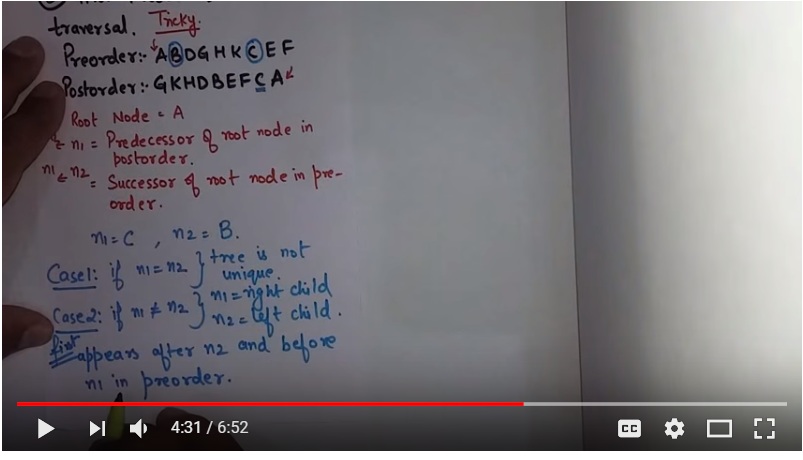 traversal. Tricky.
Preorder:- A B D G H K C E F
Postorder:- G K H D B E F C A
Root Node = A
n1 = Predecessor of root node in
postorder.
n1 n2 = Successor of root node in pre-
order.
n1 = C , n2 = B.
Case1: if n1 = n2 } tree is not
unique.
Case2: if n1 ≠ n2 } n1 = right child
n2 = left child.
first appears after n2 and before
n1 in preorder.
4:31 / 6:52
CC